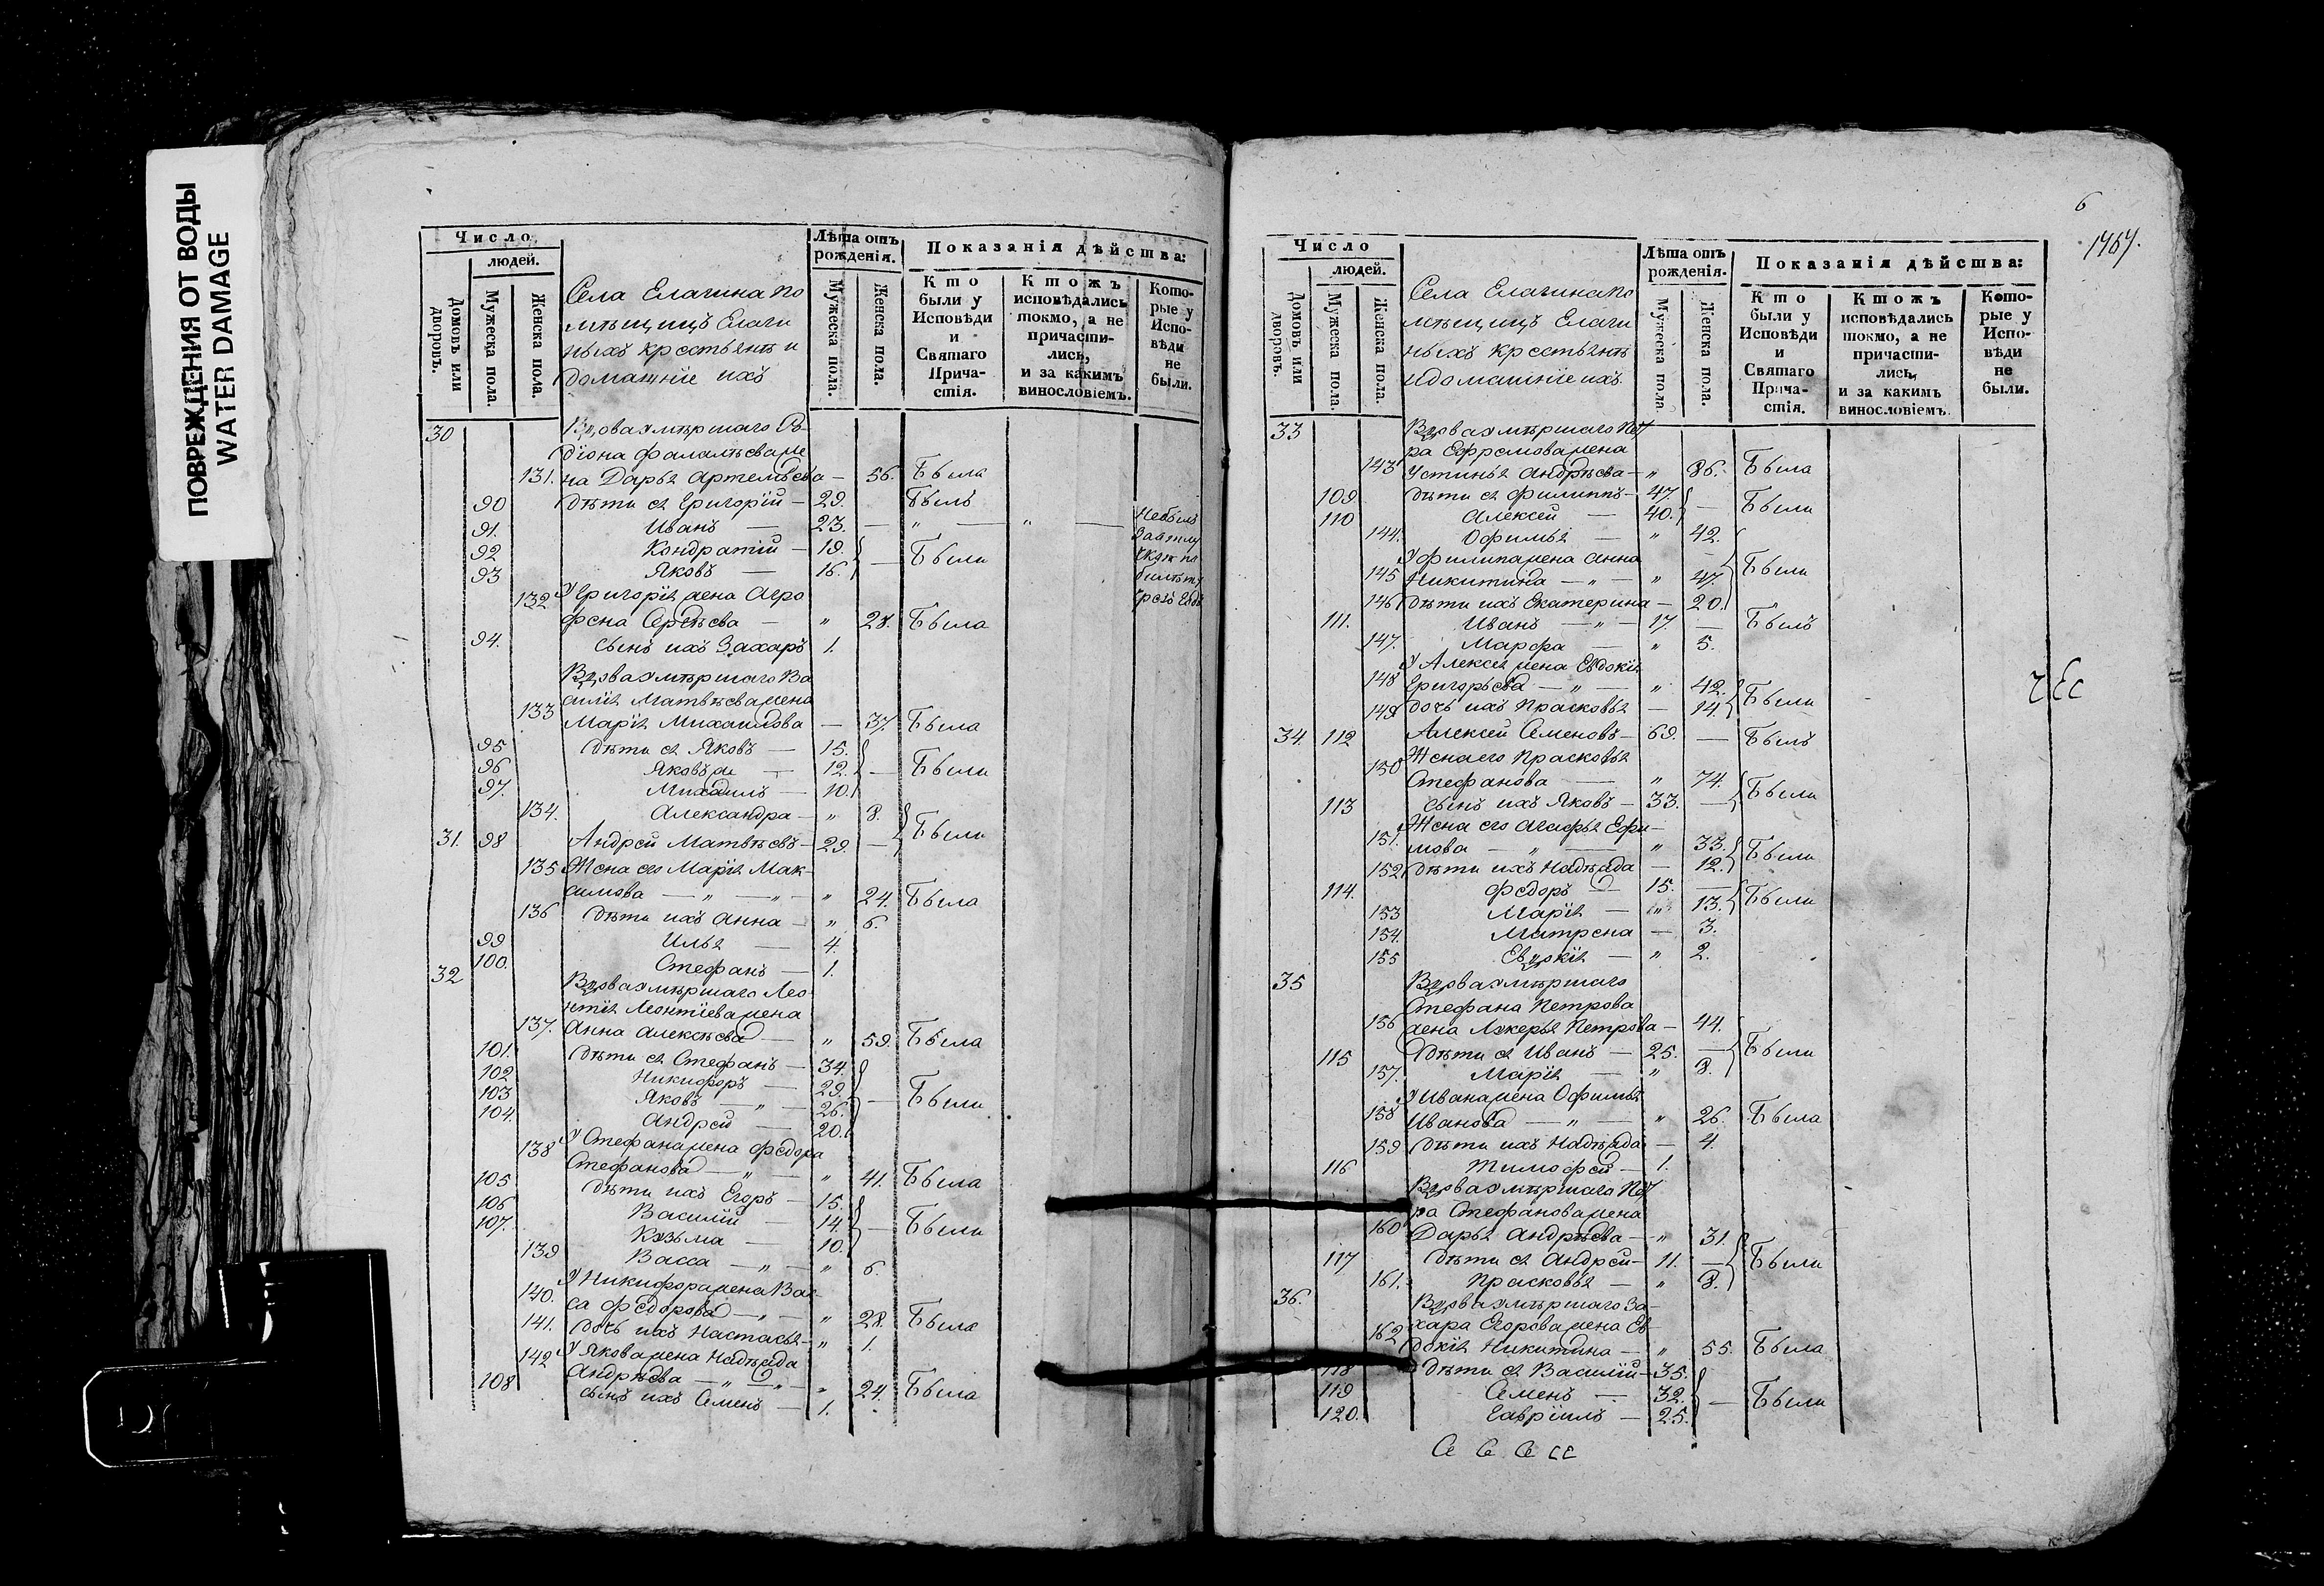 ПОВРЕЖДЕНИЯ ОТ ВОДЫ
WATER DAMAGE
Число
людей.
Домовъ или дворовъ.
Мужеска пола.
Женска пола.
Села Елагина по
мѣщицъ Елаги
ныхъ крестьянъ и
домашніе ихъ
Лѣта отъ рожденія.
Мужеска пола.
Женска пола.
Показанія дѣйства:
Кто были у Исповѣди и Святаго Причастія.
Ктожъ исповѣдались токмо, а не причастились, и за какимъ винословіемъ.
Которые у Исповѣди не были.
30 Вдова умѣршаго Ро-
діона Фалалѣева же
131. на Дарья Артемьева — 56. Была
90 дѣти ея Григорій — 29. Былъ
91. Иванъ — 23. — " — " — Небылъ
92 Кондратій — 19.
93 Яковъ — 16. — Были
132 У Григорія жена Агро
фена Сергѣева — " 28. Была
94. сынъ ихъ Захаръ 1.
Вдова умѣршаго Ва
силія Матвѣева жена
133 Марія Михаилова — 37. Была
95 дѣти ея Яковъ — 15.
96 Яковъ же — 12. — Были
97. Михаилъ — 10.
134. Александра — " 8.
31. 98 Андрей Матвѣевъ — 29. — Были
135 Жена его Марія Мак-
симова — " — " — " 24. Была
136 дѣти ихъ Анна — " 6.
99 Илья — 4.
100. Стефанъ — 1.
32 Вдова умѣршаго Лео-
нтія Леонтіева жена
137. Анна Алексѣева — " 59. Была
101. дѣти ея Стефанъ — 34.
102 Никифоръ — 29.
103 Яковъ — " — 26. — Были
104. Андрей — 20.
138 У Стефана жена Федора
Стефанова — " — " 41. Была
105 дѣти ихъ Егоръ — 15.
106 Василій — 14. — Были
107. Кузьма — 10.
139 Васса — " — " 6.
У Никифора жена Вас-
140. са Федорова — " — " 28. Была
141. дочь ихъ Настасья — " 1.
142 У Якова жена Надѣжда
Андрѣева — " — " — " 24. Была
108 сынъ ихъ Семенъ — 1.
6
1767.
Число
людей.
Домовъ или дворовъ.
Мужеска пола.
Женска пола.
Села Елагина по
мѣщицъ Елаги
ныхъ крестьянъ
и домашніе ихъ.
Лѣта отъ рожденія.
Мужеска пола.
Женска пола.
Показанія дѣйства:
Кто были у Исповѣди и Святаго Причастія.
Ктожъ исповѣдались токмо, а не причастились, и за какимъ винословіемъ.
Которые у Исповѣди не были.
33 Вдова умѣршаго Пет
ра Ефремова жена
143 Устинья Андрѣева — " 86. Была
109. дѣти ея Филиппъ — 47.
110 Алексей — 40. — Были
144. Офимья — " 42.
У Филипа жена Анна
145 Никитина — " — " 47. Были
146 дѣти ихъ Екатерина — 20.
111. Иванъ — " — 17. — Былъ
147. Марфа — " 5.
У Алексея жена Евдокія
148 Григорьева — " — " 42. Были
149 дочь ихъ Прасковья — 14.
34. 112 Алексей Семеновъ — 69. — Былъ
Жена его Прасковья
150 Стефанова — " 74. Были
113 сынъ ихъ Яковъ — 33. —
Жена его Агафья Ефи-
151. мова — " — " 33. Были
152 дѣти ихъ Надѣжда — 12.
114. Федоръ — 15. — Были
153 Марія — " 13.
154. Матрена — 3.
155 Евдокія — " 2.
35 Вдова умѣршаго
Стефана Петрова
156 жена Лукерья Петрова — 44.
115 Дѣти ея Иванъ — 25. — Были
157. Марія — " 8.
У Ивана жена Офимья
158 Иванова — " — " 26. Была
159 дѣти ихъ Надѣжда — 4.
116 Тимофей — 1.
Вдова умѣршаго Пет
ра Стефанова жена
160 Дарья Андрѣева — " 31.
117 дѣти ея Андрей — 11. — Были
161. Прасковья — " 8.
36. Вдова умѣршаго За-
хара Егорова жена Ев-
162 докія Никитина — " 55. Была
118 дѣти ея Василій — 35.
119 Семенъ — 32. — Были
120. Гавріилъ — 25.